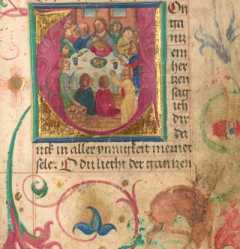 On
ga
ntz
em
her
tzen
sag
ich
dir
da
nck in aller ynnigkeit meiner
sele. O du liecht der gantzen